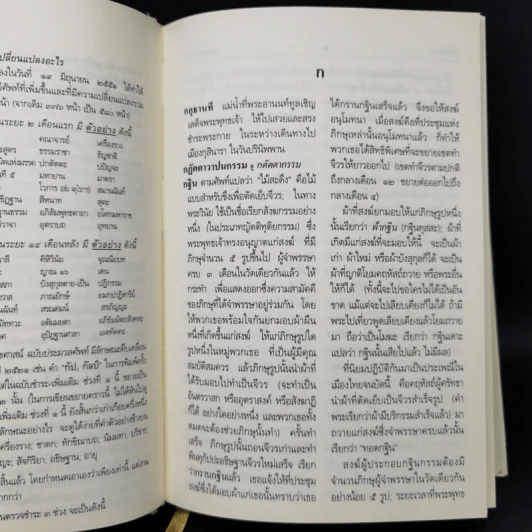 เปลี่ยนแปลงอะไร
ลงในวันที่ ๑๙ มิถุนายน ๒๕๕๑ ได้ทำให้
ศัพท์ที่เพิ่มขึ้นและที่มีความเปลี่ยนแปลงรวม
หน้า (จากเดิม ๓๗๖ หน้า เป็น ๕๘๐ หน้า)
ในระยะ ๒ เดือนแรก มี ตัวอย่าง ดังนี้
คณาจารย์ เครื่องราง
ธรรมราชา ชิญชาติ
ปกตัตตะ ปปัญจะ
มหายาน มาตรา
โวการ สมานฉันท์
สีหนาท สุตะ
อภิสัมพุทธคาถา
อุตราบถ อุทยาน
ในระยะ ๑๔ เดือนหลัง มี ตัวอย่าง ดังนี้
คิหิวินัย จุณณิยบท
ญาณ ๑๖ เถน
บังสุกุลตาย-เป็น ปฏิกรรม
ภาณยักษ์
สรณคมน์ สรภัญญะ
๓ นั้น
ก
กกุธานที แม่น้ำที่พระอานนท์ทูลเชิญ
เสด็จพระพุทธเจ้า ให้ไปเสวยและสรง
ชำระพระกาย ในระหว่างเดินทางไป
เมืองกุสินารา ในวันปรินิพพาน
กฎัตตาวาปนกรรม ดู กตัตตากรรม
กฐิน ตามศัพท์แปลว่า “ไม้สะดึง” คือไม้
แบบสำหรับขึงเพื่อตัดเย็บจีวร; ในทาง
พระวินัย ใช้เป็นชื่อเรียกสังฆกรรมอย่าง
หนึ่ง (ในประเภทญัตติทุติยกรรม) ซึ่ง
พระพุทธเจ้าทรงอนุญาตแก่สงฆ์ ที่มี
ภิกษุจำนวน ๕ รูปขึ้นไป ผู้จำพรรษา
ครบ ๓ เดือนในวัดเดียวกันแล้ว ให้
กระทำ เพื่อแสดงออกซึ่งความสามัคคี
ของภิกษุที่ได้จำพรรษาอยู่ร่วมกัน โดย
ให้พวกเธอพร้อมใจกันยกมอบผ้าผืน
หนึ่งที่เกิดขึ้นแก่สงฆ์ ให้แก่ภิกษุรูปใด
รูปหนึ่งในหมู่พวกเธอ ที่เป็นผู้มีคุณ
สมบัติสมควร แล้วภิกษุรูปนั้นนำผ้าที่
ได้รับมอบไปทำเป็นจีวร (จะทำเป็น
อันตรวาสก หรืออุตราสงค์ หรือสังฆาฏิ
ก็ได้ อย่างใดอย่างหนึ่ง และพวกเธอทั้ง
หมดจะต้องช่วยภิกษุนั้นทำ) ครั้นทำ
เสร็จ ภิกษุรูปนั้นถอนจีวรเก่าและทำ
พินทุกัปปะอธิษฐานจีวรใหม่เสร็จ เรียก
ว่ากรานกฐินแล้ว เธอแจ้งให้ที่ประชุม
สงฆ์ซึ่งได้มอบผ้าแก่เธอนั้นทราบว่าเธอ
ได้กรานกฐินเสร็จแล้ว จึงขอให้สงฆ์
อนุโมทนา เมื่อสงฆ์คือที่ประชุมแห่ง
ภิกษุเหล่านั้นอนุโมทนาแล้ว ก็ทำให้
พวกเธอได้สิทธิพิเศษที่จะขยายเขตทำ
จีวรให้ยาวออกไป (เขตทำจีวรตามปกติ
ถึงกลางเดือน ๑๒ ขยายต่อออกไปถึง
กลางเดือน ๔)
ผ้าที่สงฆ์ยกมอบให้แก่ภิกษุรูปหนึ่ง
นั้นเรียกว่า ผ้ากฐิน (กฐินทุสสะ); ผ้าที่
เกิดมีแก่สงฆ์ที่จะมอบให้นี้ จะเป็นผ้า
เก่า ผ้าใหม่ หรือผ้าบังสุกุลก็ได้ จะเป็น
ผ้าที่ญาติโยมคฤหัสถ์ถวาย หรือพระอื่น
ให้ก็ได้ (ทั้งนี้จะไปขอใครไม่ได้เป็นอัน
ขาด แม้แต่จะไปเลียบเคียงก็ไม่ได้ ถ้ามี
พระไปเที่ยวพูดเลียบเคียงแล้วโยมถวาย
มา ถือว่าเป็นโมฆะ เรียกว่า กฐินเดาะ
แปลว่า กฐินนั้นเสียไปแล้ว ไม่มีผล)
ที่นิยมปฏิบัติกันมาเป็นประเพณีใน
เมืองไทยจนบัดนี้ คือคฤหัสถ์ผู้ศรัทธา
นำผ้าที่ตัดเย็บเป็นจีวรสำเร็จรูป (คำ
พระเรียกว่าผ้ามีบริกรรมสำเร็จแล้ว) มา
ถวายแก่สงฆ์ซึ่งจำพรรษาครบแล้วนั้น
เรียกว่า “ทอดกฐิน”
สงฆ์ผู้ประกอบกฐินกรรมต้องมี
จำนวนภิกษุผู้จำพรรษาในวัดเดียวกัน
อย่างน้อย ๕ รูป; ระยะเวลาที่พระพุทธ